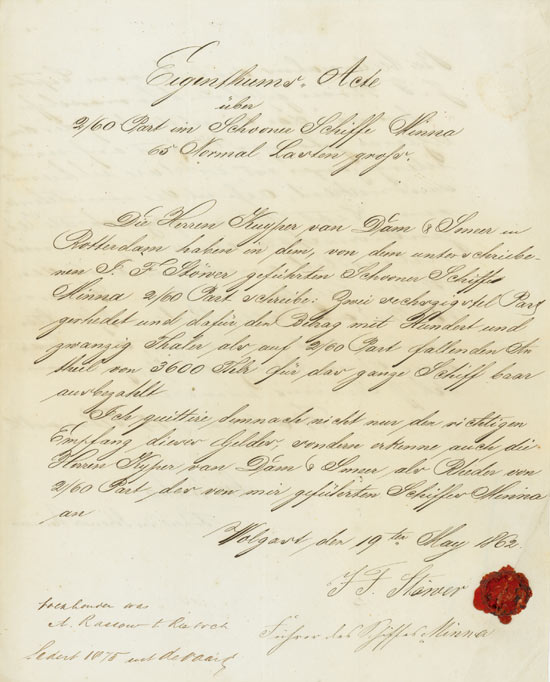 Eigenthums-Acte
über
2/60 Part im Schooner Schiffe Minna
65 Normal Lasten gross.
Die Herren Kuyper van Dam & Smeer in
Rotterdam haben in dem, von dem unterschriebe-
nen J. F. Stöwer geführten Schooner Schiffe
Minna 2/60 Part schreibe: Zwei sechszigstel Part
gerhedet und dafür den Betrag mit Hundert und
zwanzig Thaler, als auf 2/60 Part fallenden An
theil von 3600 Thlr für das ganze Schiff baar
ausbezahlt
Ich quittire demnach nicht nur den richtigen
Empfang dieser Gelder, sondern erkenne auch die
Herren Kuyper van Dam & Smeer als Rheder von
2/60 Part des von mir geführten Schiffes Minna
an
Wolgast, den 19ten May 1862.
J. F. Stöwer
Führer des Schiffes Minna
boekhouder was
A. Rassow te
1875 uit de vaart